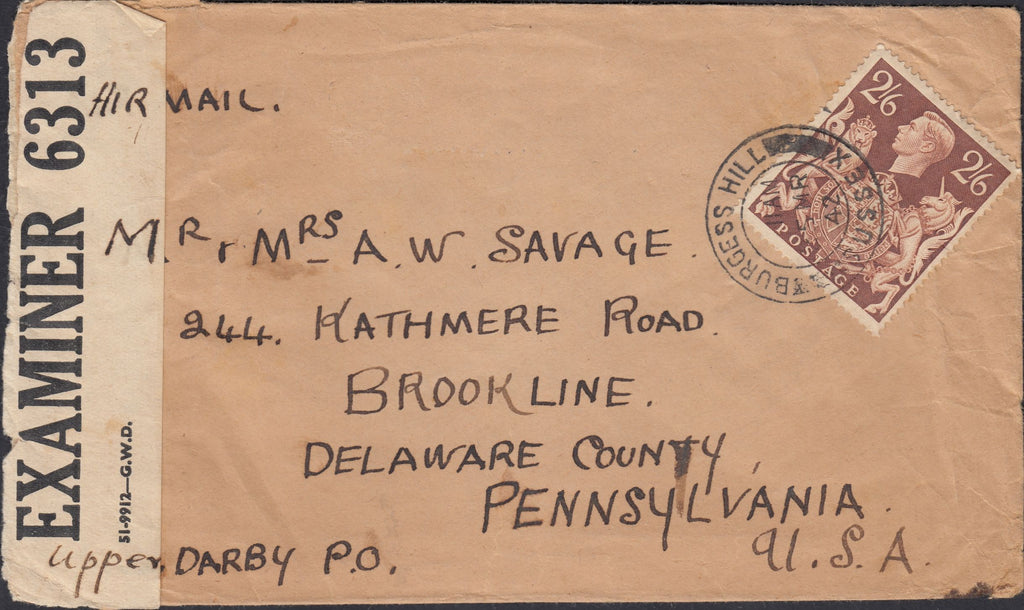 EXAMINER 6313
51-9912-G.W.D.
AIR MAIL.
2/6 2/6
POSTAGE
BURGESS HILL
SUSSEX
MR
42
MR & MRS A. W. SAVAGE.
244. KATHMERE ROAD.
BROOKLINE.
DELAWARE COUNTY,
PENNSYLVANIA.
U.S.A.
Upper, DARBY P.O.